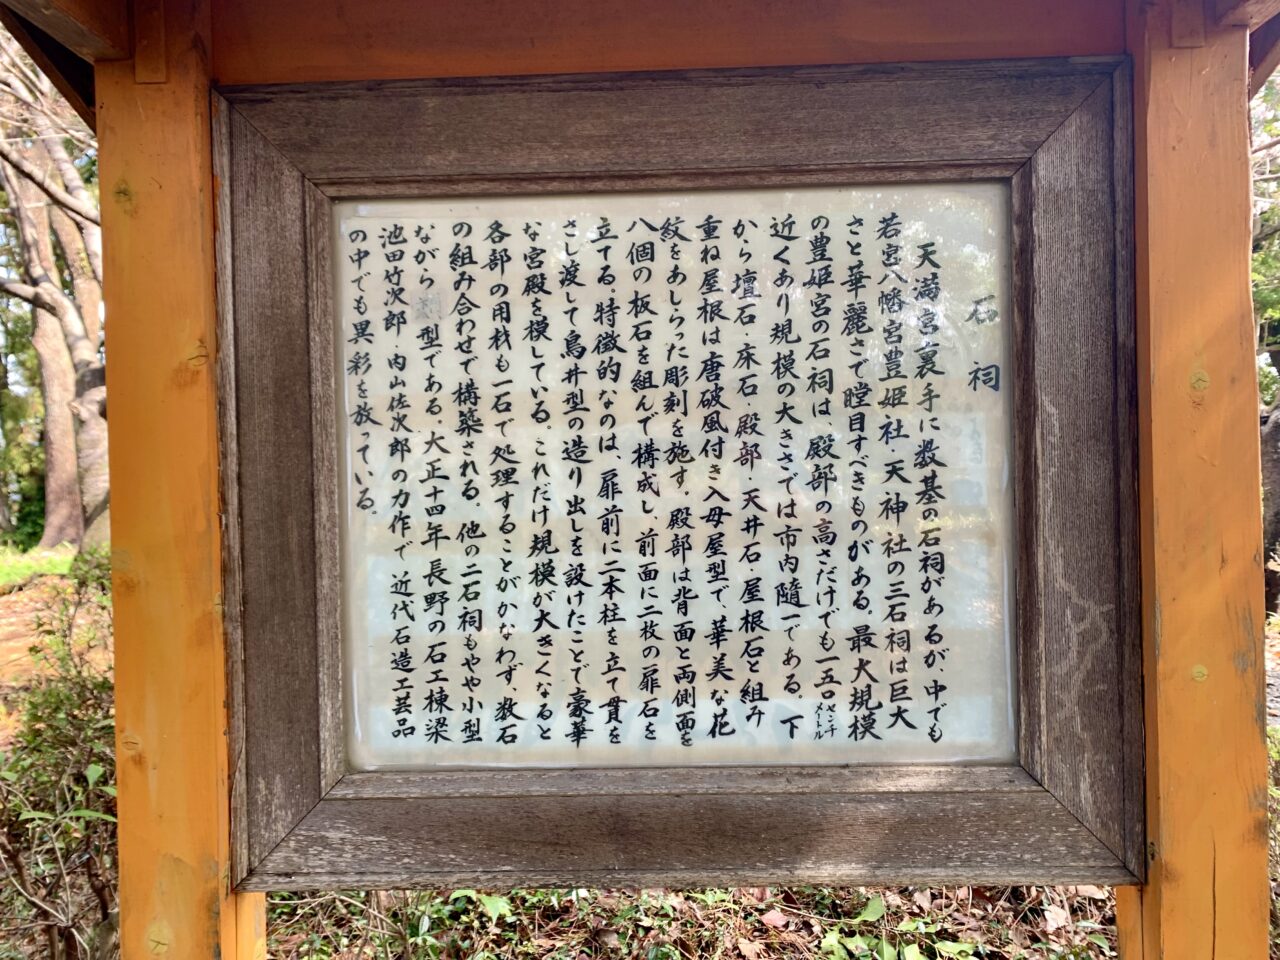 石祠
天満宮裏手に数基の石祠があるが、中でも
若宮八幡宮豊姫社・天神社の三石祠は巨大
さと華麗さで瞠目すべきものがある。最大規模
の豊姫宮の石祠は、殿部の高さだけでも一五〇センチメートル
近くあり規模の大きさでは市内随一である。下
から壇石・床石・殿部・天井石・屋根石と組み
重ね屋根は唐破風付き入母屋型で、華美な花
紋をあしらった彫刻を施す。殿部は背面と両側面を
八個の板石を組んで構成し、前面に二枚の扉石を
立てる。特徴的なのは、扉前に二本柱を立て貫を
さし渡して鳥井型の造り出しを設けたことで豪華
な宮殿を模している。これだけ規模が大きくなると
各部の用材も一石で処理することがかなわず、数石
の組み合わせで構築される。他の二石祠もやや小型
ながら型である。大正十四年長野の石工棟梁
池田竹次郎・内山佐次郎の力作で近代石造工芸品
の中でも異彩を放っている。